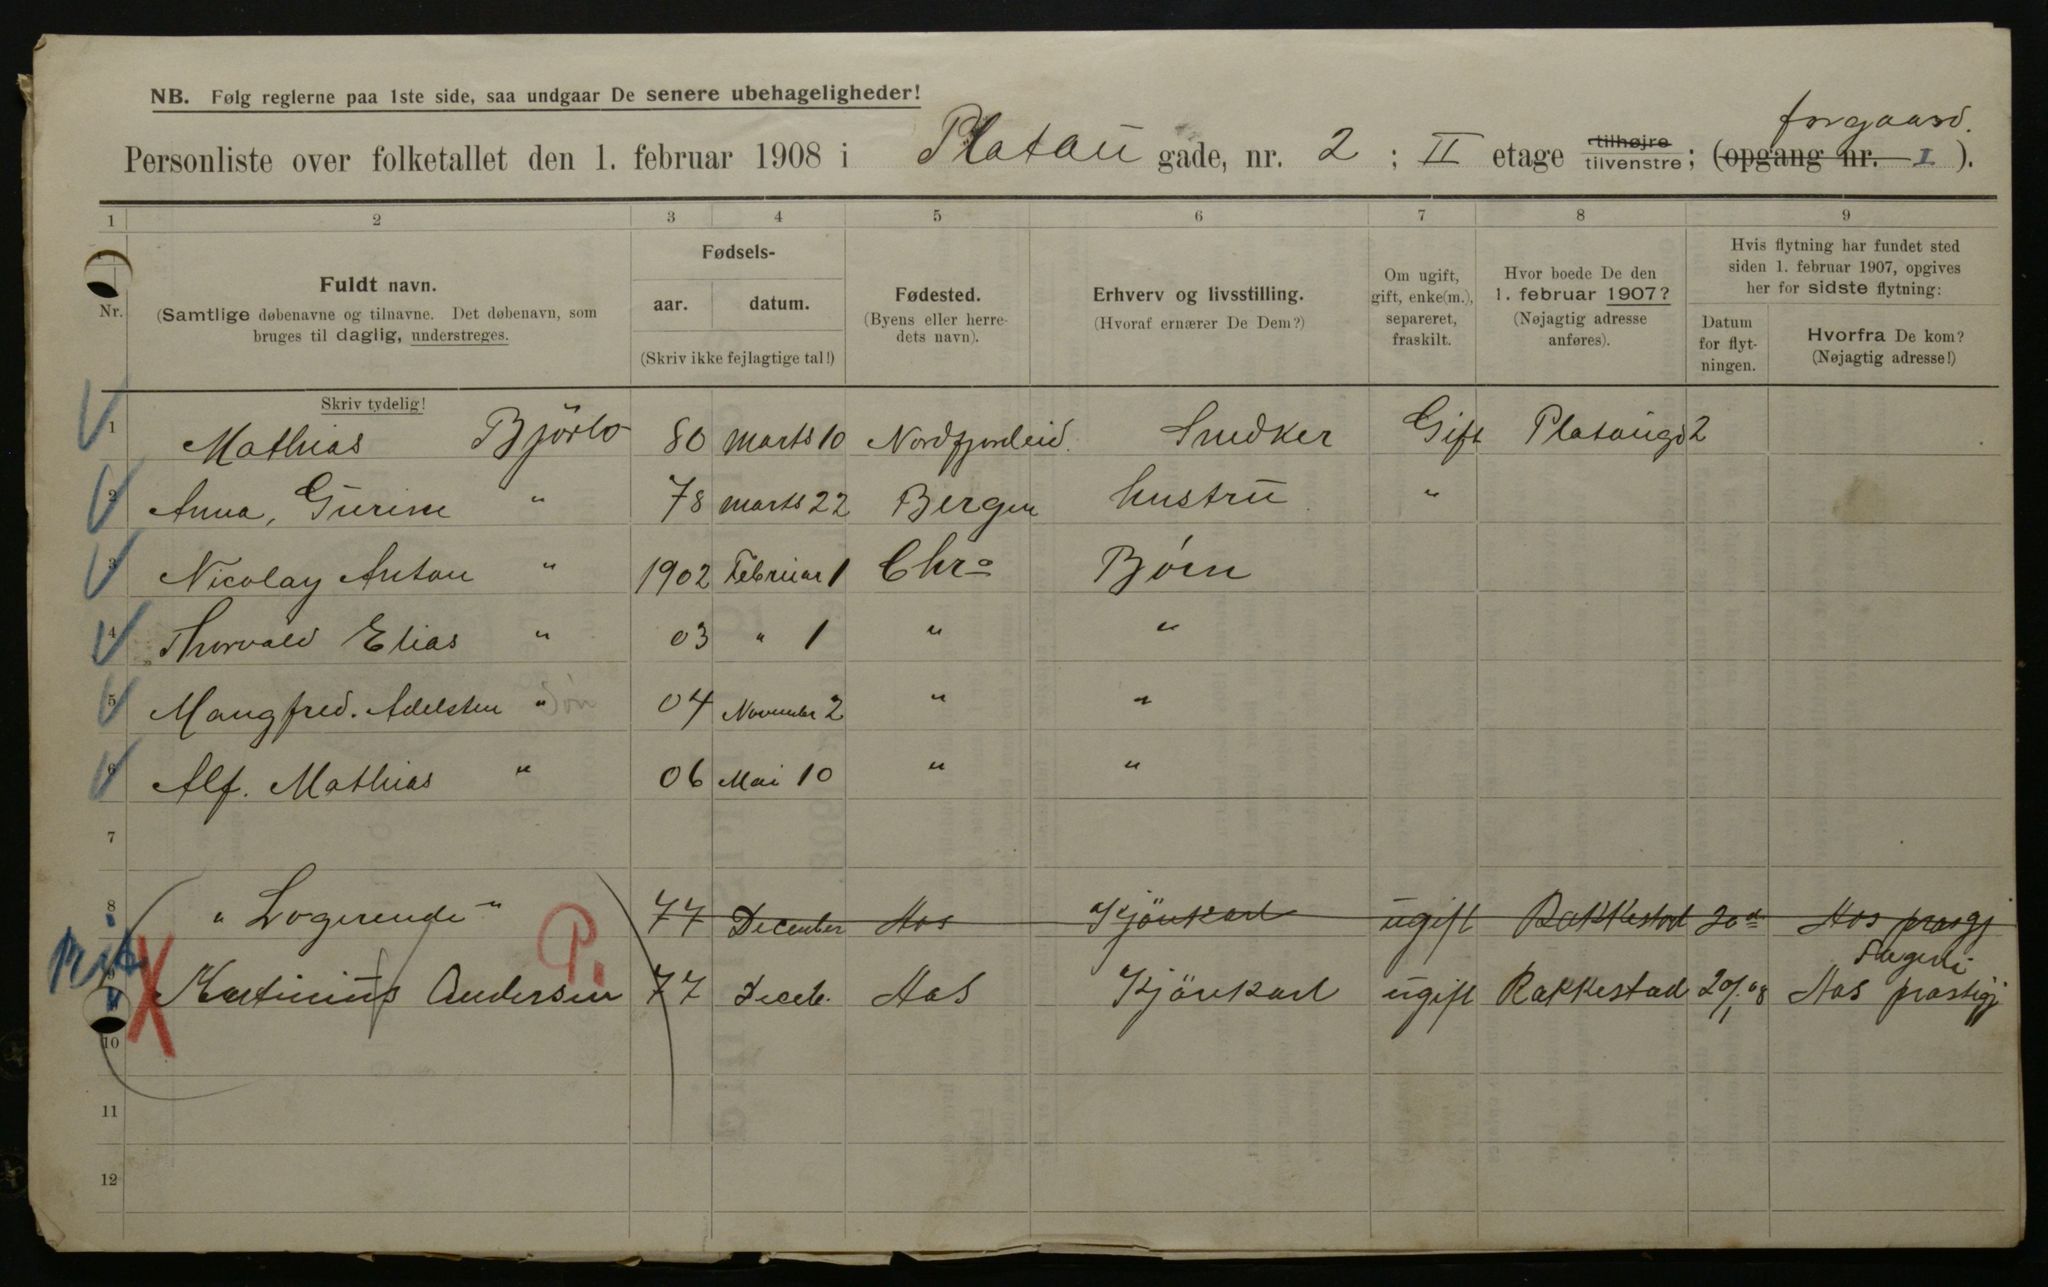 NB. Følg reglerne paa 1ste side, saa undgaar De senere ubehageligheder!
forgaard.
Personliste over folketallet den 1. februar 1908 i Platou gade, nr. 2 ; II etage tilhøjre tilvenstre; (opgang nr. I ).
1 2 3 4 5 6 7 8 9
Nr.
Fuldt navn.
(Samtlige døbenavne og tilnavne. Det døbenavn, som
bruges til daglig, understreges.
Skriv tydelig!
Fødsels-
aar. datum.
(Skriv ikke fejlagtige tal!)
Fødested.
(Byens eller herre-
dets navn).
Erhverv og livsstilling.
(Hvoraf ernærer De Dem?)
Om ugift,
gift, enke(m.),
separeret,
fraskilt.
Hvor boede De den
1. februar 1907?
(Nøjagtig adresse
anføres).
Hvis flytning har fundet sted
siden 1. februar 1907, opgives
her for sidste flytning:
Datum
for flyt-
ningen.
Hvorfra De kom?
(Nøjagtig adresse!)
1 Mathias Björlo 80 marts 10 Nordfjordeid. Snedker Gift Platougd 2
2 Anna, Gurine " 78 marts 22 Bergen hustru "
3 Nicolay Anton " 1902 Februar 1 Chra Börn
4 Thorvald Elias " 03 " 1 " "
5 Mangfred. Adelsten " 04 November 2 " "
6 Alf. Mathias " 06 Mai 10 " "
7
8 " Logerende " 77 December Aas Kjörekarl ugift Rakkestad 20d Aas prestgj
P.
9 Martinius Andersen 77 Deceb. Aas Kjörekarl ugift Rakkestad 20/1 08 Aas prestigj
10
11
12